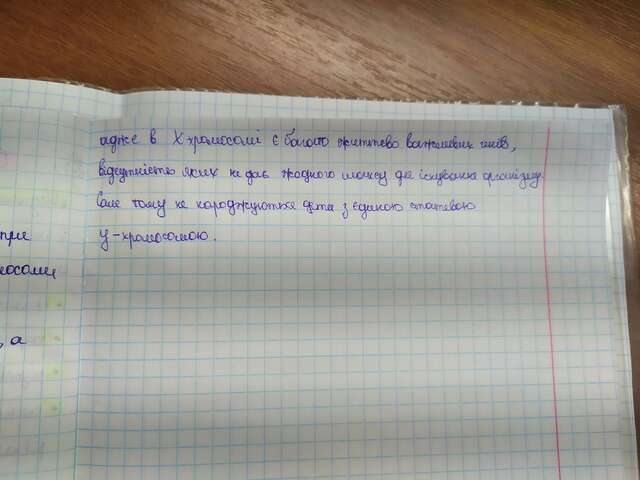 адже в Х хромосомі є багато життєво важливих генів,
відсутність яких не дає жодного шансу для існування організму.
Саме тому не народжуються діти з єдиною статевою
У-хромосомою.
при
мосоми
, а